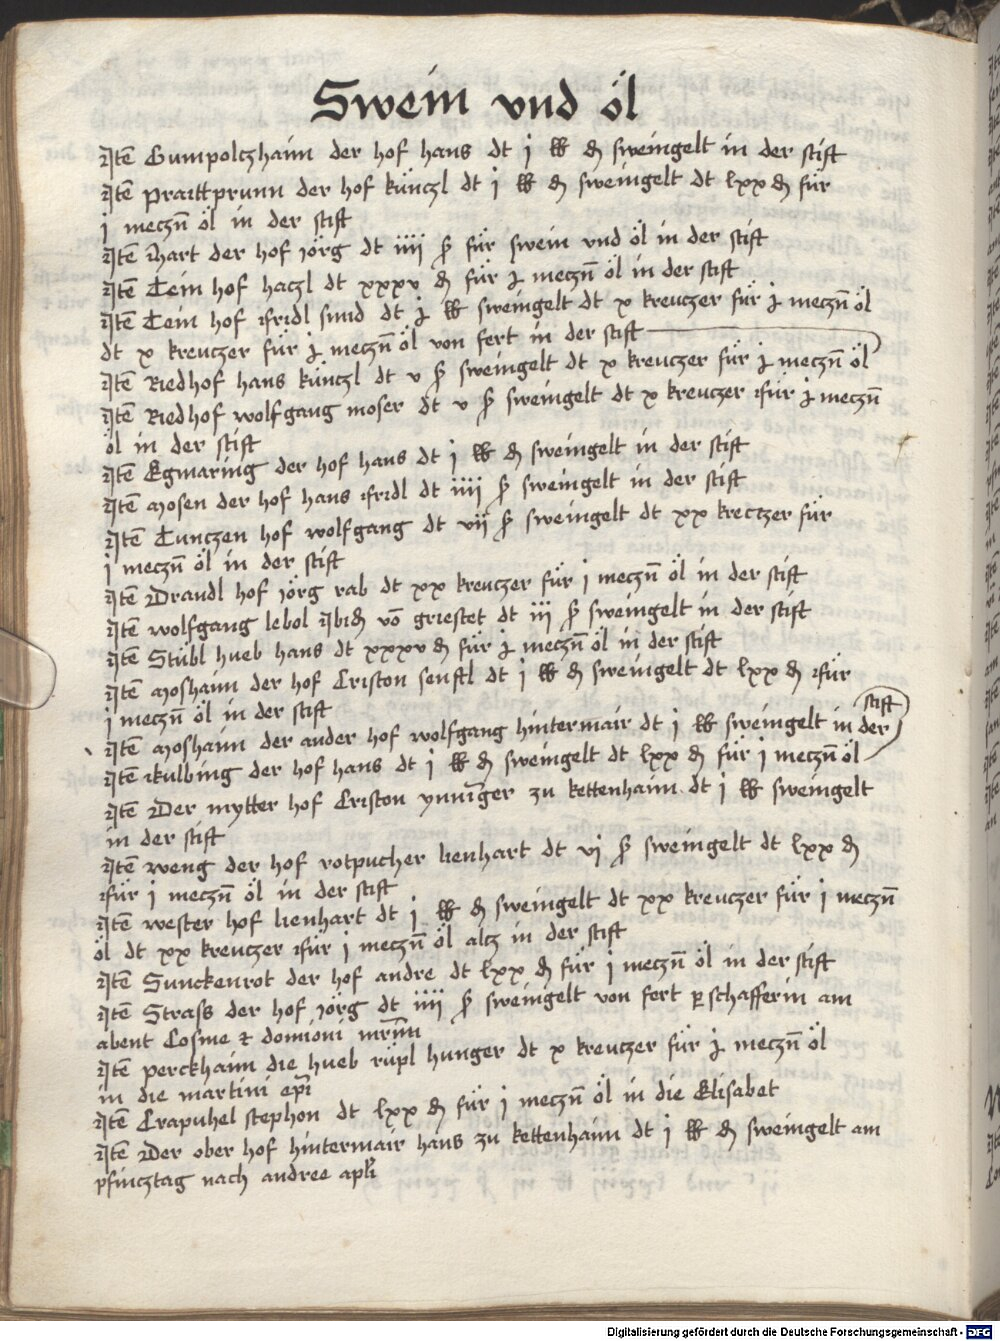 Swein vnd öl
Itē Gumpolczhaim der hof hans dt j lb ₰ sweingelt in der stift
Itē praittprunn der hof künczl dt j lb ₰ sweingelt dt lxx ₰ für
j meczn̄ öl in der stift
Itē Hart der hof jörg dt iiij ß für swein vnd öl in der stift
Itē Tein hof haczl dt xxxv ₰ für j meczn̄ öl in der stift
Itē Tein hof fridl smid dt j lb sweingelt dt x kreuczer für j meczn̄ öl
dt x kreuczer für j meczn̄ öl von fert in der stift
Itē Riedhof hans künczl dt v ß sweingelt dt x kreuczer für j meczn̄ öl
Itē Riedhof wolfgang moser dt v ß sweingelt dt x kreuczer für j meczn̄
öl in der stift
Itē Egmaring der hof hans dt j lb ₰ sweingelt in der stift
Itē Mosen der hof hans fridl dt iiij ß sweingelt in der stift
Itē Tunczen hof wolfgang dt vij ß sweingelt dt xx kreczer für
j meczn̄ öl in der stift
Itē Draudl hof jörg rab dt xx kreuczer für j meczn̄ öl in der stift
Itē wolfgang lebol Ibid vō griestet dt iij ß sweingelt in der stift
Itē Stübl hueb hans dt xxxv ₰ für j meczn̄ öl in der stift
Itē Moshaim der hof Criston senftl dt j lb ₰ sweingelt dt lxx ₰ für
j meczn̄ öl in der stift
Itē Moshaim der ander hof wolfgang hintermair dt j lb sweingelt in der stift
Itē külbing der hof hans dt j lb ₰ sweingelt dt lxx ₰ für j meczn̄ öl
Itē Der mytter hof Criston zu kettenhaim dt j lb sweingelt
in der stift
Itē weng der hof rotpucher lienhart dt vj ß sweingelt dt lxx ₰
für j meczn̄ öl in der stift
Itē wester hof lienhart dt j lb ₰ sweingelt dt xx kreuczer für j meczn̄
öl dt xx kreuczer für j meczn̄ öl alcz in der stift
Itē Sunckenrot der hof andre dt lxx ₰ für j meczn̄ öl in der stift
Itē Strass der hof jörg dt iiij ß sweingelt von fert ꝑ schafferin am
abent Cosme et domioni mr̄m
Itē perckhaim die hueb rüpl hunger dt x kreuczer für j meczn̄ öl
in die martini ep̄i
Itē Crapuhel stephon dt lxx ₰ für j meczn̄ öl in die Elisabet
Itē Der ober hof hintermair hans zu kettenhaim dt j lb ₰ sweingelt am
pfincztag nach andree apl̄i
Digitalisierung gefördert durch die Deutsche Forschungsgemeinschaft - DFG